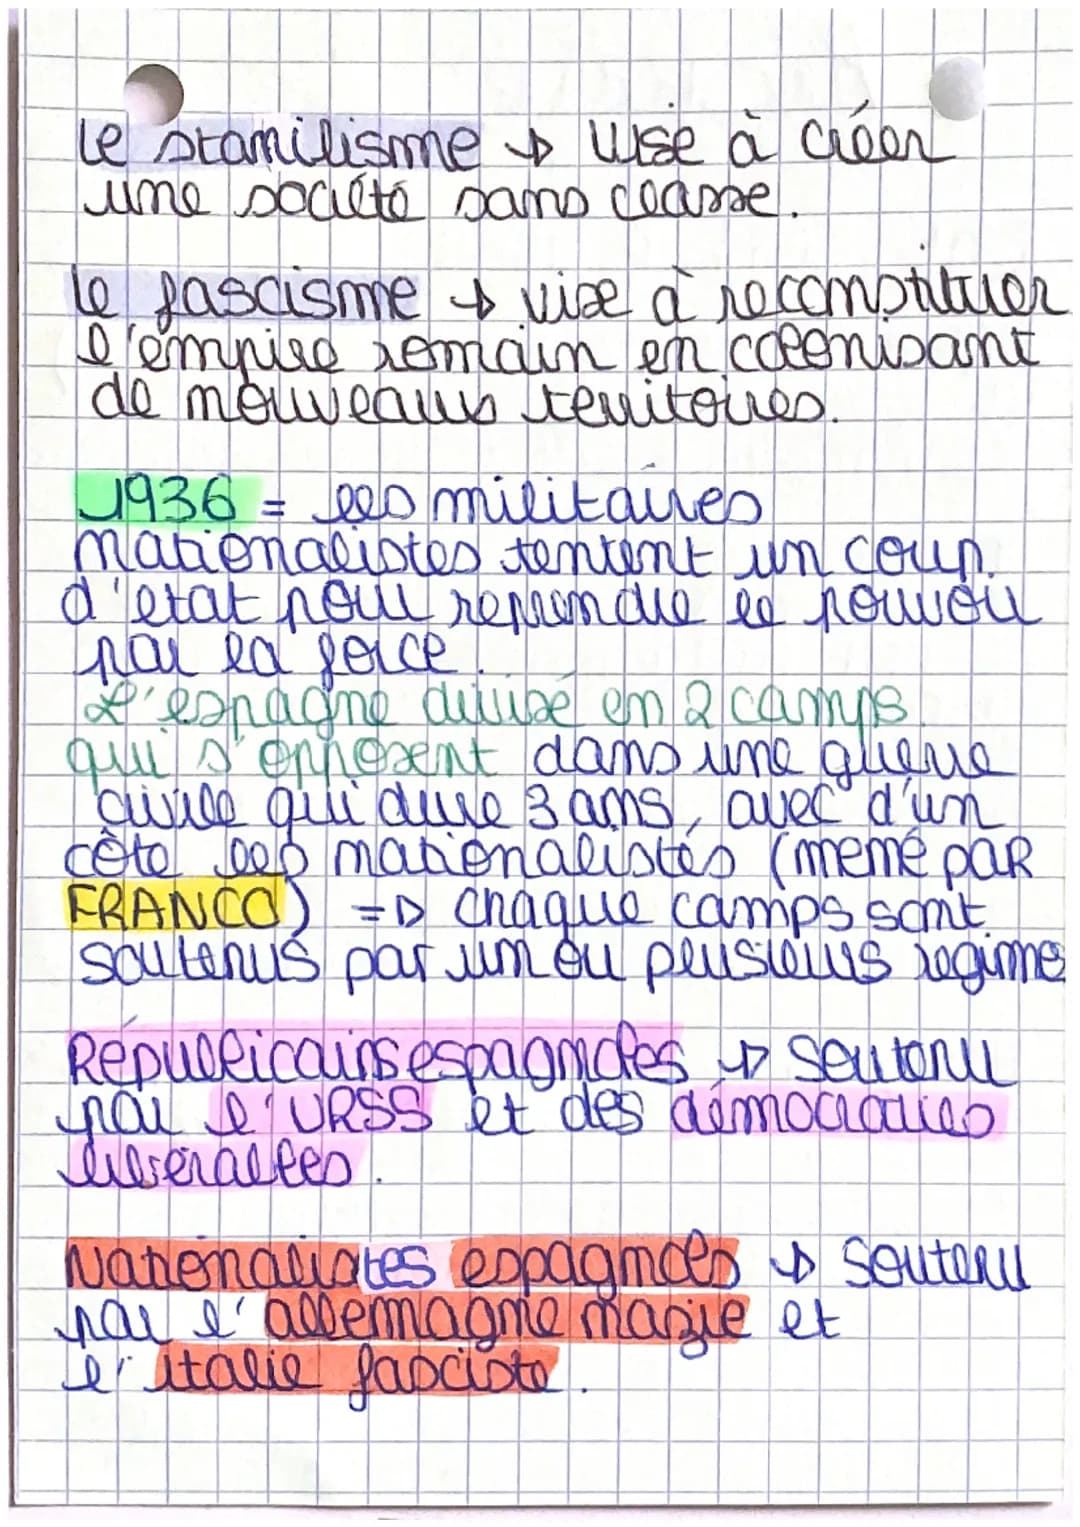 le stanilisme → vise à créer
une société sans classe.
le fascisme → vise à reconstituer
l'empire romain en colonisant
de nouveaux territoires.
1936 = les militaires
nationalistes tentent un coup
d'etat pour reprendre le pouvoir
par la force.
L'espagne divisé en 2 camps
qui s'opposent dans une guerre
civile qui dure 3 ans, avec d'un
côte les nationalistes (mené paR
FRANCO) => chaque camps sont
soutenus par un ou plusieurs regime
Républicains espagnoles → soutenu
par l'URSS et des démocraties
liberalles.
Nationalistes espagnoles → soutenu
par l'allemagne nazie et
l'italie fasciste.